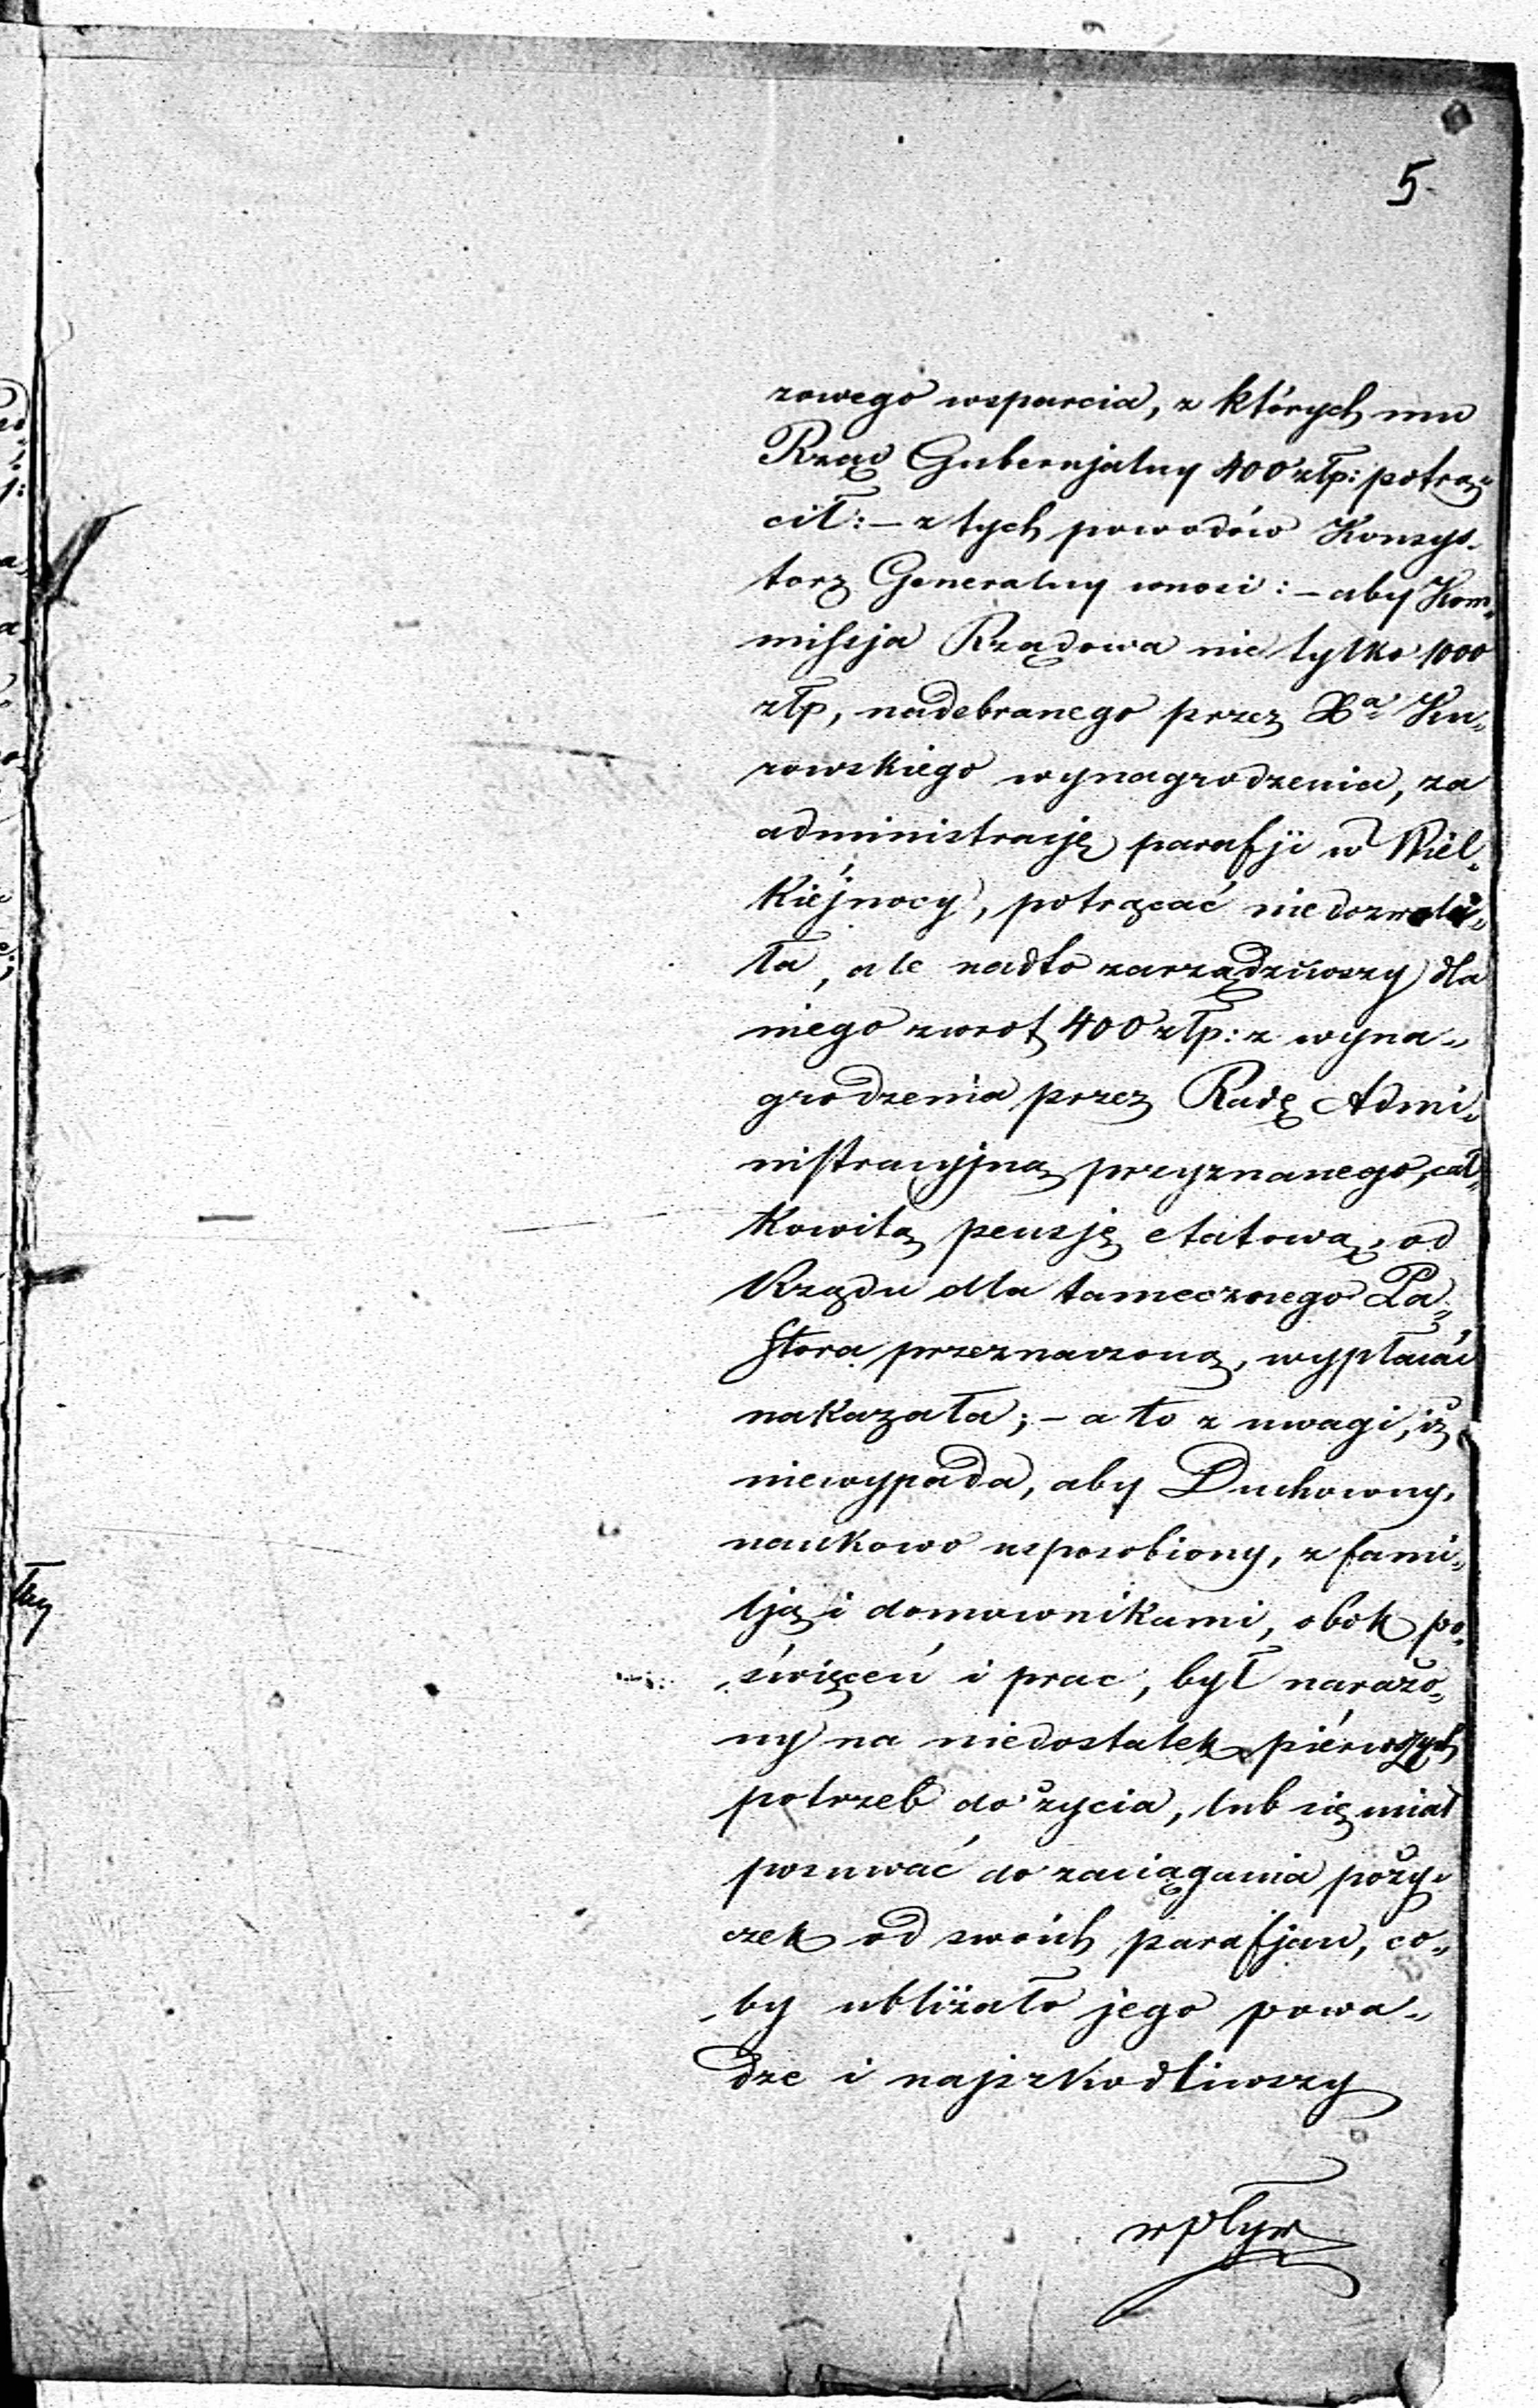 5
zowego wsparcia, z których mu
Rząd Gubernjalny 400 złp: potrą„
cił: – z tych powodów Konsys„
torz Generalny wnosi: – aby Kom„
missja Rządowa nie tylko 1000
złp, nadebranego przez Xa Ku„
rowskiego wynagrodzenia, za
administrację parafji w Wiel„
kiéjnocy, potrącać niedozwoli„
ła, ale nadto zarządziwszy dla
niego zwrot 400 złp: z wyna„
grodzenia przez Radę Admi„
nistracyjną przyznanego, cał„
kowitą pensję etatową, od
Rządu dla tamecznego Pa„
stora przeznaczoną, wypłacać
nakazała; – a to z uwagi, iż
niewypada, aby Duchowny,
naukowo usposobiony, z fami„
lją i domownikami, obok po„
święceń i prac, był narażo„
ny na niedostatek piérwszych
potrzeb do życia, lub się miał
posuwać do zaciągania poży„
czek od swoich parafjan, co„
„by ubliżało jego powa„
dze i najszkodliwszy
wpływ